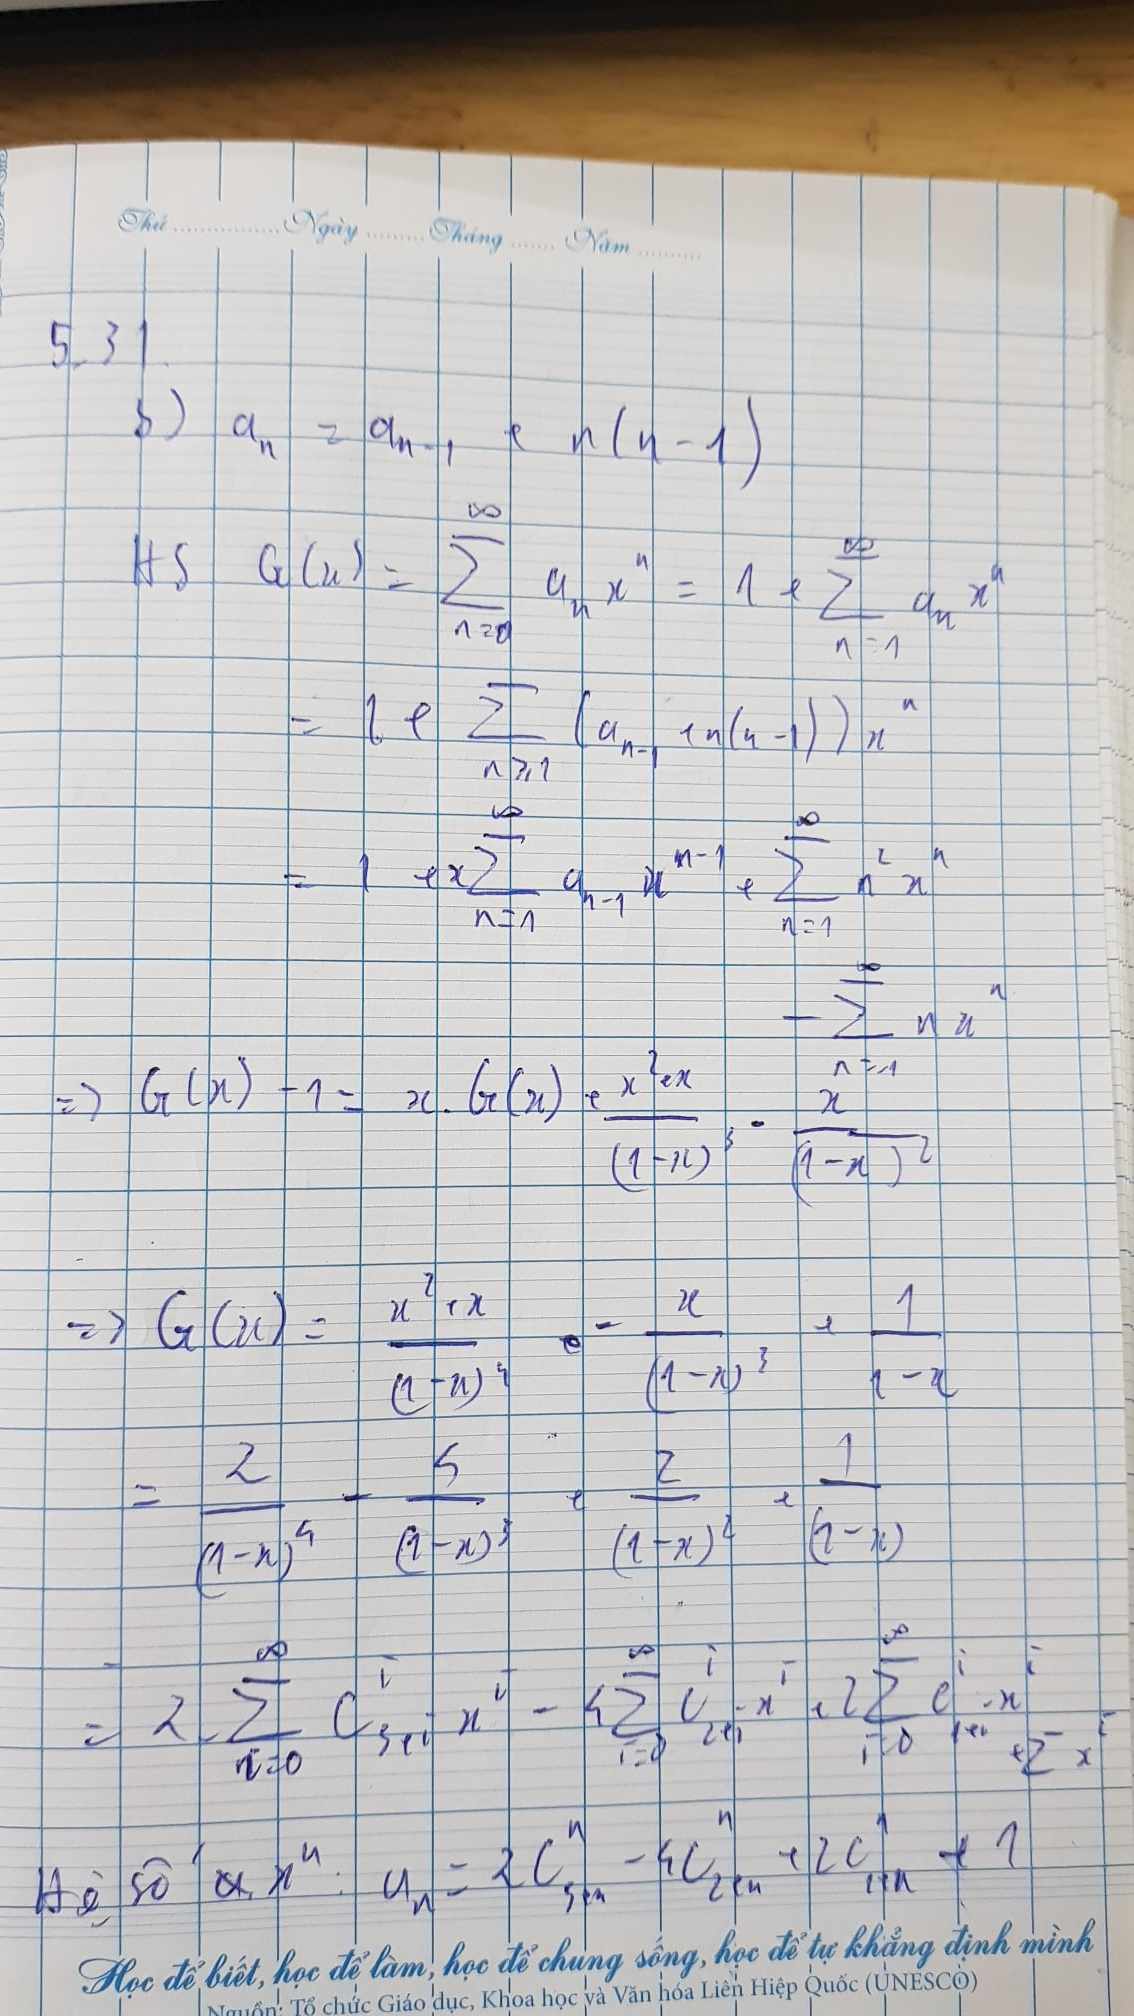 Thứ ................ Ngày ......... Tháng ....... Năm ..........
5.31.
b) a_n = a_{n-1} + n(n-1)
HS G(x) = \sum_{n=0}^{∞} a_n x^n = 1 + \sum_{n=1}^{∞} a_n x^n
= 1 + \sum_{n≥1} (a_{n-1} + n(n-1)) x^n
= 1 + x \sum_{n=1}^{∞} a_{n-1} x^{n-1} + \sum_{n=1}^{∞} n^2 x^n
- \sum_{n=1}^{∞} n x^n
=> G(x) - 1 = x. G(x) + \frac{x^2+x}{(1-x)^3} - \frac{x}{(1-x)^2}
=> G(x) = \frac{x^2+x}{(1-x)^4} - \frac{x}{(1-x)^3} + \frac{1}{1-x}
= \frac{2}{(1-x)^4} - \frac{4}{(1-x)^3} + \frac{2}{(1-x)^2} + \frac{1}{(1-x)}
= 2. \sum_{i=0}^{∞} C_{3+i}^{i} x^i - 4 \sum_{i=0}^{∞} C_{2+i}^{i} . x^i + 2 \sum_{i=0}^{∞} C_{1+i}^{i} . x^i + \sum x^i
Hệ số x^n : a_n = 2C_{3+n}^{n} - 4C_{2+n}^{n} + 2C_{1+n}^{n} + 1
Học để biết, học để làm, học để chung sống, học để tự khẳng định mình
Nguồn: Tổ chức Giáo dục, Khoa học và Văn hóa Liên Hiệp Quốc (UNESCO)